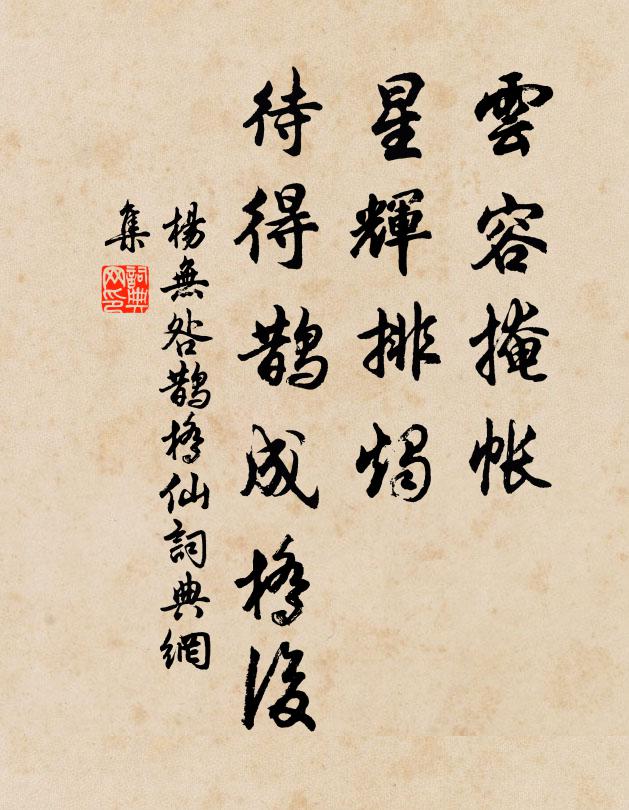 雲容掩帳
星輝排燭
待得鵲成橋後
楊無咎鵲橋仙詞典網
集
詞典
网印